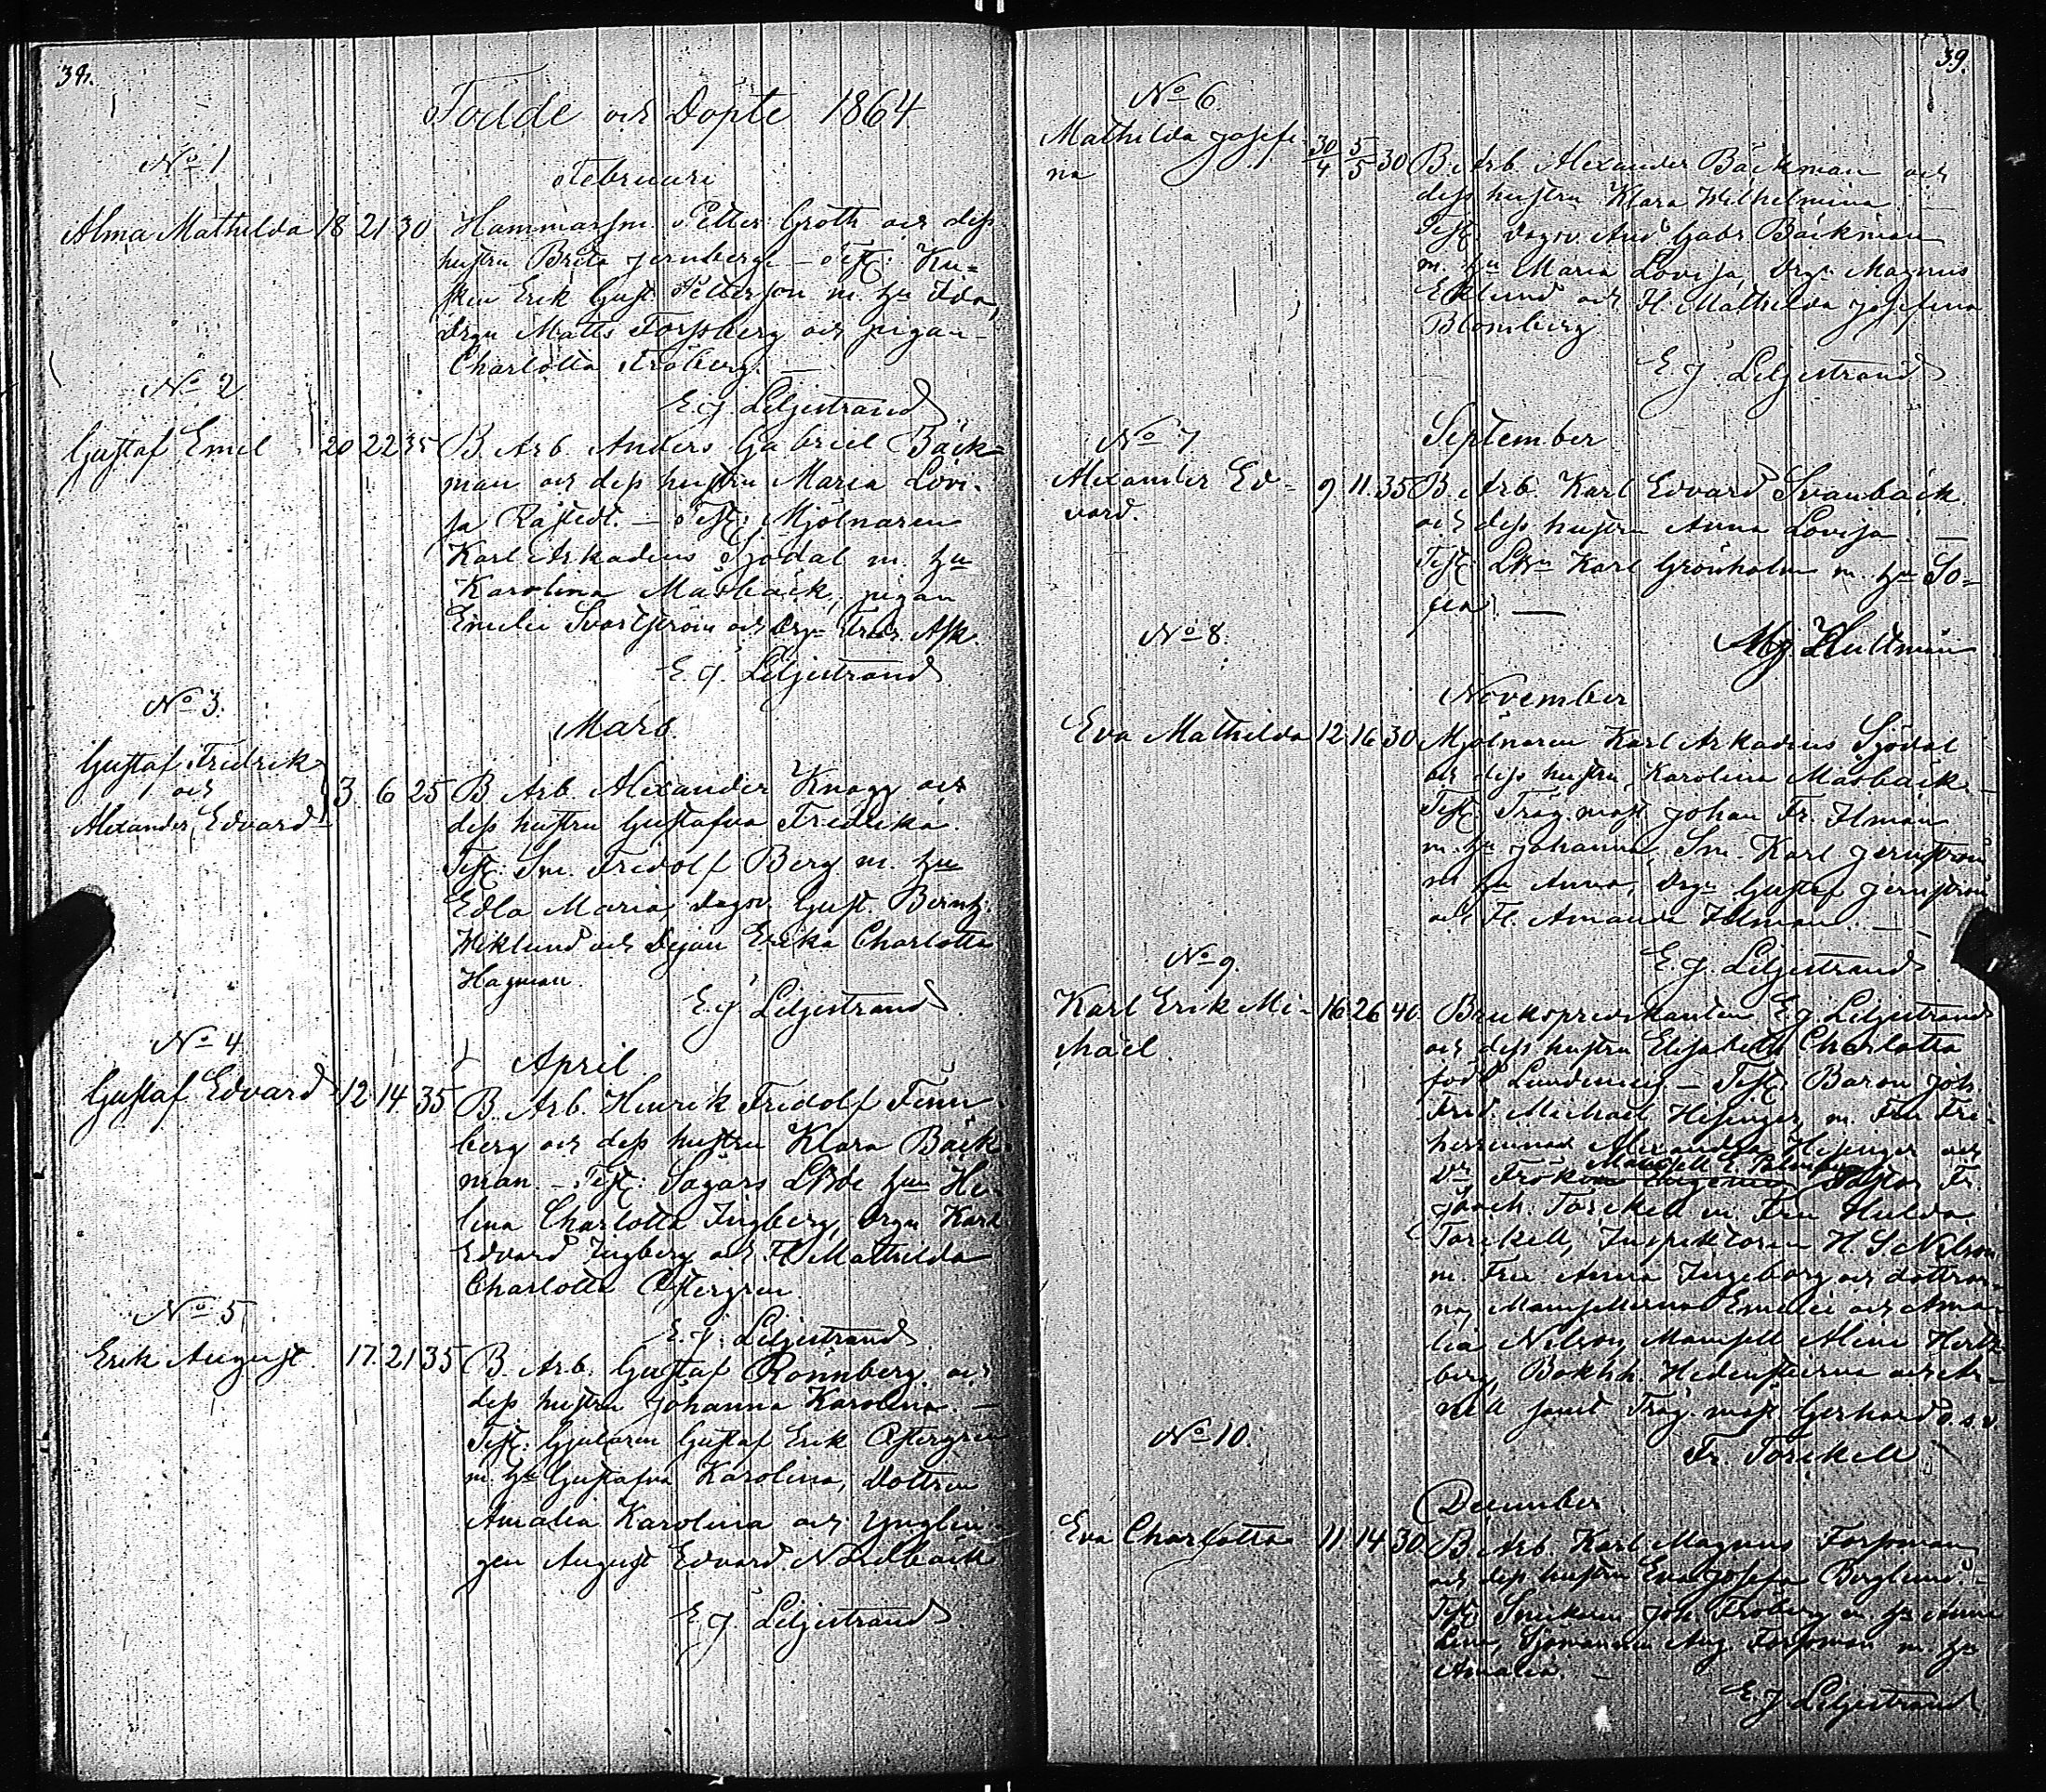 38.
Födde och Döpte 1864
No 1
Februari
Alma Mathilda 18 21 30 Hammarsm. Petter Groth och dess
hustru Brita Jernberg. – Test: Ku=
sken Erik Gust. Petterson m. hu Ida,
drgn Matts Forssberg och pigan
Charlotta Fröberg. —
E. J. Liljestrand
No 2
Gustaf Emil 20 22 35 B. Arb. Anders Gabriel Bäck=
man och dess hustru Maria Lovi-
sa Råstedt. – Test: Mjölnaren
Karl Arkadius Sjödal m. hu
Karolina Masbäck, pigan
Emelie Svartström och Drgn Fredr. Ask.
E. J. Liljestrand
No 3.
Mars.
Gustaf Fredrik
och
Alexander Edvard 3 6 25 B. Arb. Alexander Knagg och
dess hustru Gustafva Fredrika.
Test: Sm. Fridolf Berg m. hu
Edla Maria, dagov. Gust. Bernh.
Wiklund och Dejan Erika Charlotta
Hagman.
E. J. Liljestrand
No 4
April
Gustaf Edvard 12 14 35 B. Arb. Henrik Fridolf Finn-
berg och dess hustru Klara Bäck-
man. – Test: Sågars hun He-
lena Charlotta Ingberg, Drgn Karl
Edvard Ingberg och Fl. Mathilda
Charlotta Östergren.
E. J. Liljestrand
No 5
Erik August. 17. 21 35 B. Arb. Gustaf Rönnberg och
dess hustru Johanna Karolina. –
Test: Gjutaren Gustaf Erik Östergren
m. hu Gustafva Karolina, Dottren
Amalia Karolina och Ynglin-
gen August Edvard Nordbäck
E. J. Liljestrand
39.
No 6
Mathilda Josefi
na 30/4 5/5 30 B. Arb. Alexander Bäckman och
dess hustru Klara Wilhelmina. –
Test: Dagov. And. Gabr. Bäckman
m. hu Maria Lovisa, Drgn Magnus
Eklund och Fl. Mathilda Josefina
Blomberg
E. J. Liljestrand
No 7
September
Alexander Ed-
vard. 9 11. 35 B. Arb. Karl Edvard Svanbäck
och dess hustru Anna Lovisa. —
Test: Karl Grönholm m. hu So=
fia. —
Mg. Hultman
No 8.
November
Eva Mathilda 12. 16 30 Mjölnaren Karl Arkadius Sjödal
och dess hustru Karolina Masbäck. –
Test: Träg. mäst. Johan Fr. Ilman
m. hu Johanna, Sm. Karl Jernström
m hu Anna, Drgn Gustaf Jernström
och Fl. Amanda Ilman. —
E. J. Liljestrand
No 9.
Karl Erik Mi-
chaël. 16. 26 40. Brukspredikanten E. J. Liljestrand
och dess hustru Elisabeth Charlotta
född Lundming – Test: Baron Joh.
Fred. Michaël Hisinger m. Fru Fri-
herrinnan Alexandra Hisinger och
Mamsell E.
Fröken Pastor Fr.
Joach. Torckell m. Fru Hulda
Torckell, Inspektoren H. S Nilson
m. Fru Anna Ingeborg och döttrar-
na, Mamsellerna Emelie och Ama-
lia Nilson, Mamsell Aline Hertz-
berg, Bokhh. Hedenstierna och Ar-
nell samt Träg. mäst. Gerhard o.s.v.
Fr. Torckell
No 10.
December
Eva Charlotta 11 14 30 B. Arb. Karl Magnus Forsman
och dess hustru Eva Josefa Berglund. –
Test: Snickaren Joh. Fröberg m. hu Anna
Lena, Sjömannen Aug. Forsman m. hu
Amalia. –
E. J. Liljestrand